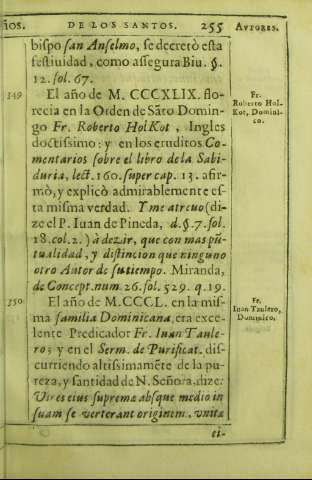 ños.
DE LOS SANTOS.
255
AVTORES.
bispo san Anselmo, se decretò esta
festiuidad, como assegura Biu. §.
12. fol. 67.
349
El año de M. CCCXLIX. flo-
recia en la Orden de Sāto Domin-
go Fr. Roberto HolKot, Ingles
doctissimo: y en los eruditos Co-
mentarios sobre el libro de la Sabi-
duria, lect. 160. super cap. 13. afir-
mò, y explicò admirablemente es-
ta misma verdad. Y me atreuo (di-
ze el P. Iuan de Pineda, d. §. 7. fol.
18. col. 2.) à dezir, que con mas pū-
tualidad, y distincion que ninguno
otro Autor de su tiempo. Miranda,
de Concept. num. 26. fol. 529. q. 19.
Fr.
Roberto Hol-
Kot, Domini-
co.
350
El año de M. CCCL. en la mis-
ma familia Dominicana, era exce-
lente Predicador Fr. Iuan Taule-
ro; y en el Serm. de Purificat. dis-
curriendo altissimamēte de la pu-
reza, y santidad de N. Señora, dize:
Vires eius supremæ absque medio in
suam se verterant originem, vnitæ
Fr.
Iuan Taulero,
Dominico.
ei-